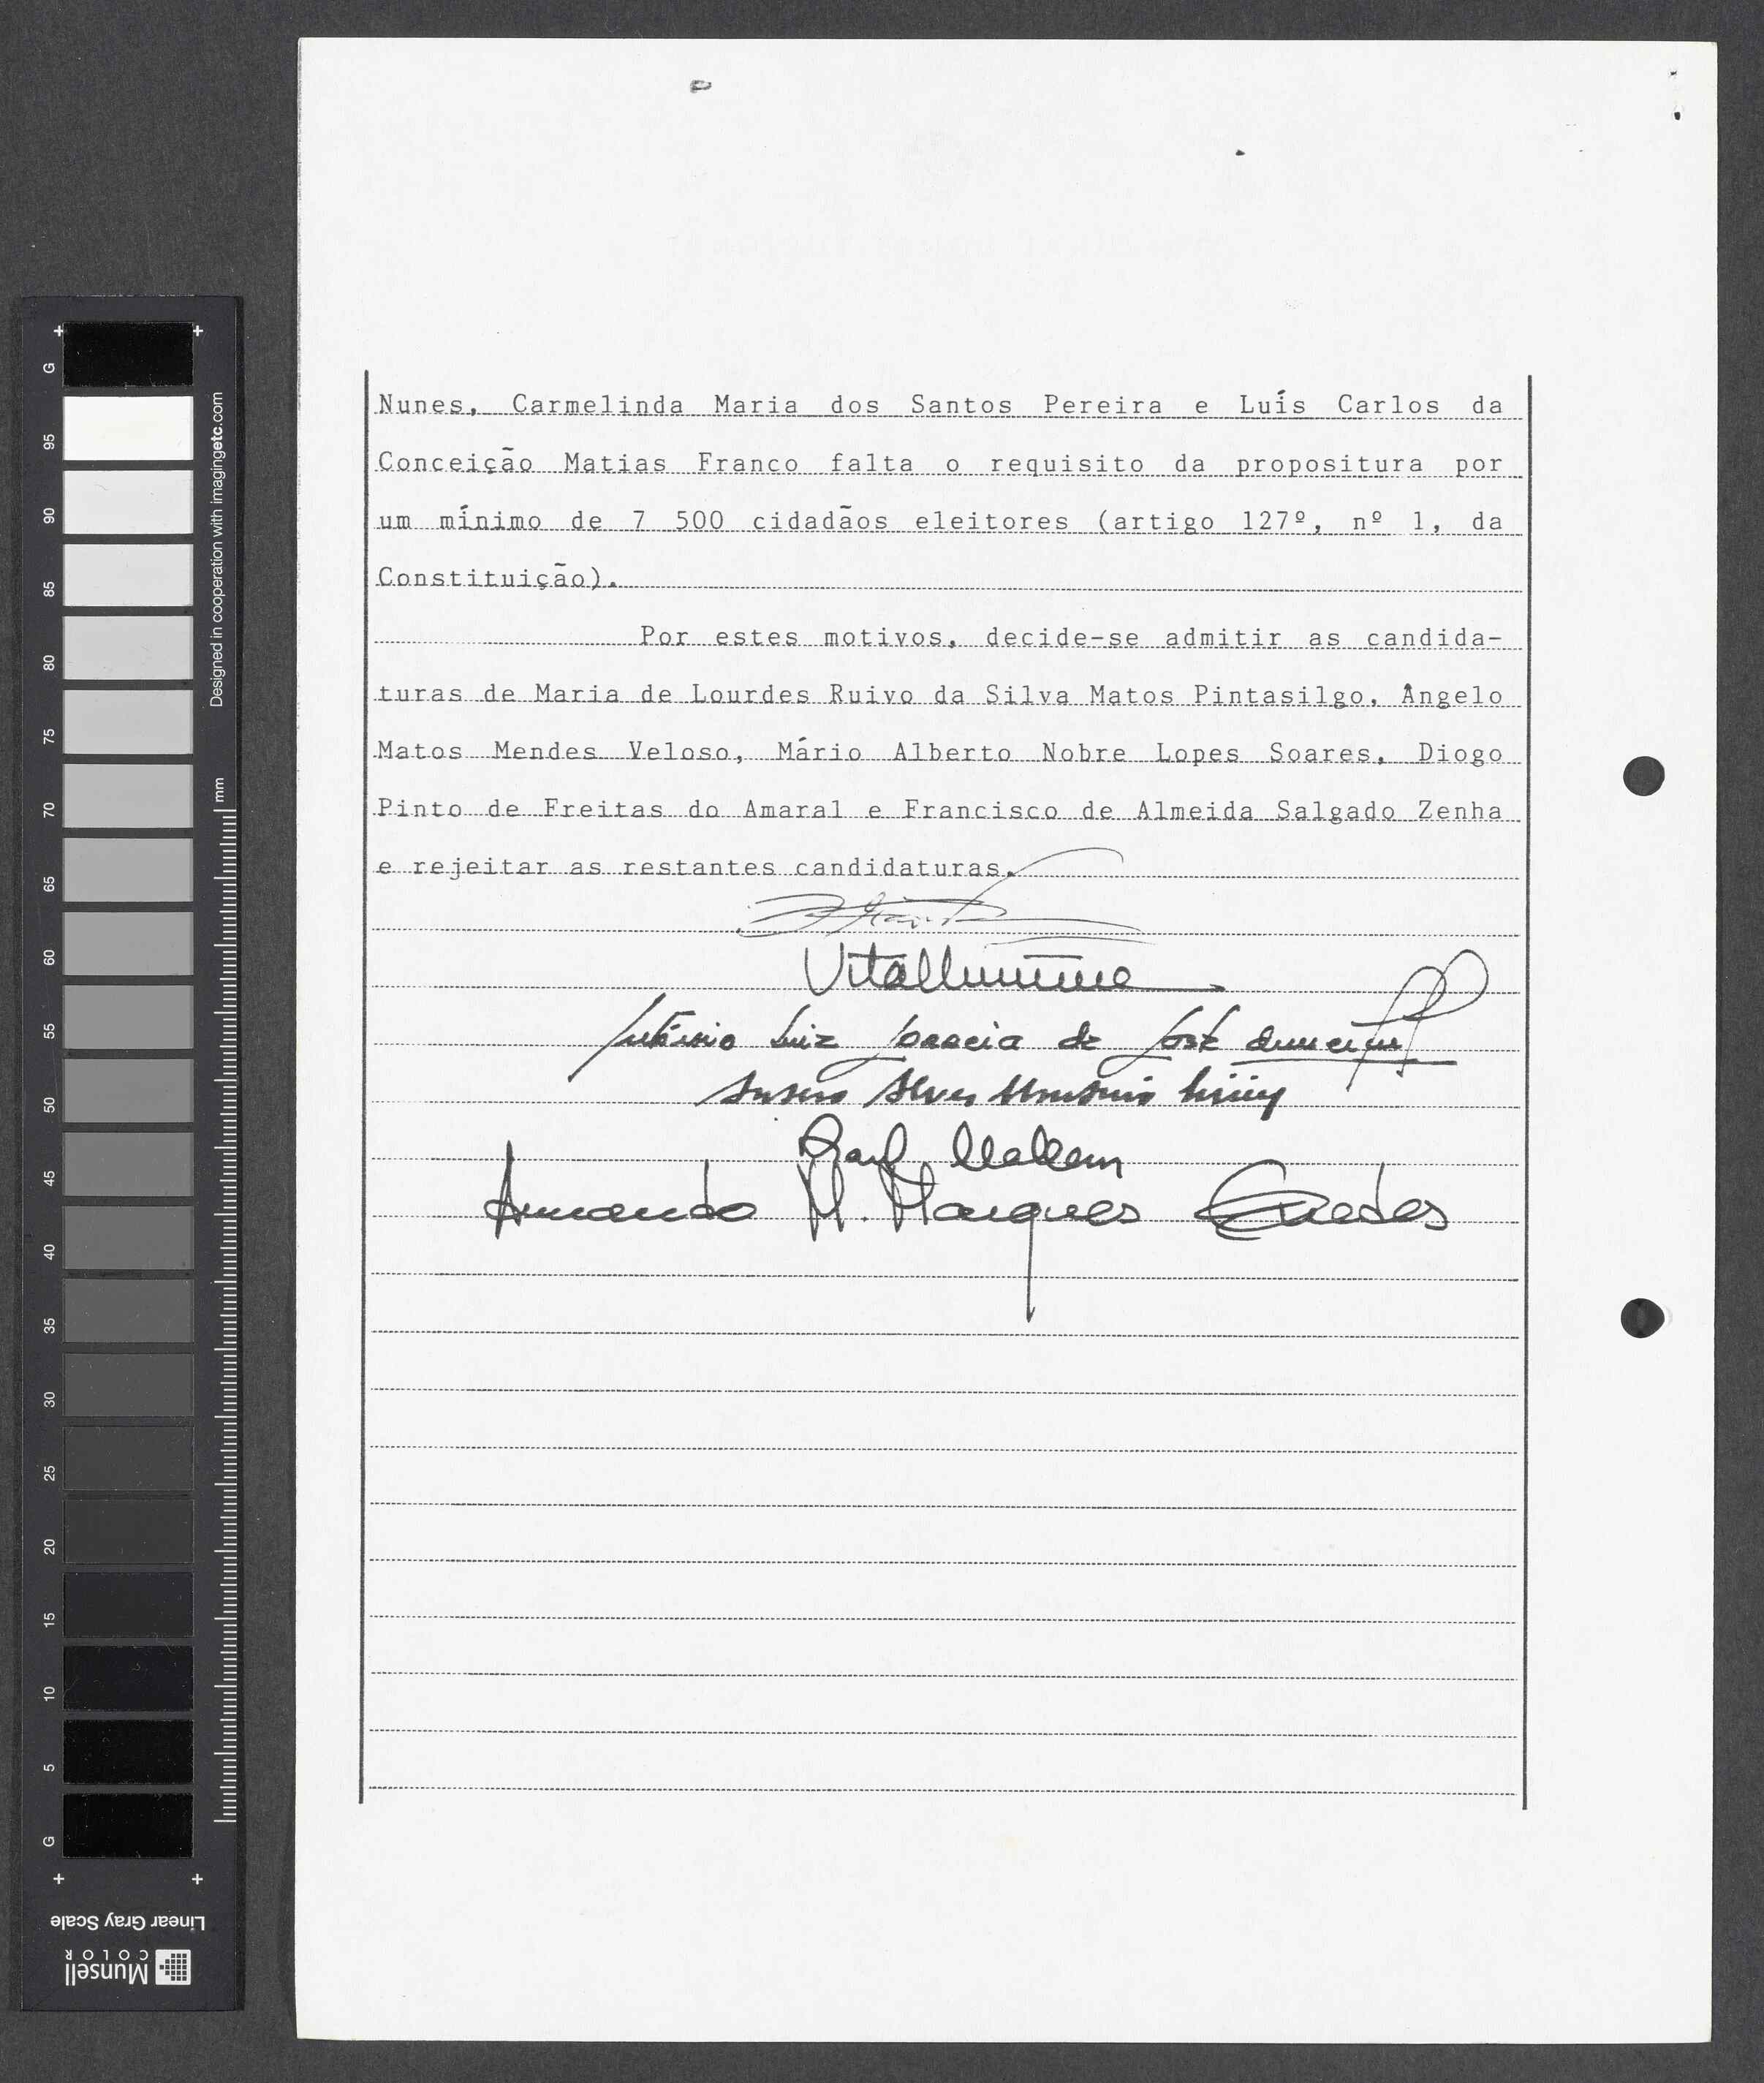 Nunes, Carmelinda Maria dos Santos Pereira e Luís Carlos da
Conceição Matias Franco falta o requisito da propositura por
um mínimo de 7 500 cidadãos eleitores (artigo 127º, nº 1, da
Constituição).
Por estes motivos, decide-se admitir as candida-
turas de Maria de Lourdes Ruivo da Silva Matos Pintasilgo, Ângelo
Matos Mendes Veloso, Mário Alberto Nobre Lopes Soares, Diogo
Pinto de Freitas do Amaral e Francisco de Almeida Salgado Zenha
e rejeitar as restantes candidaturas.
António Luiz Correia da Costa
Raul Mateus
Armando M. Marques Guedes
G
95
90
85
80
75
70
65
60
55
50
45
40
35
30
25
20
15
10
5
G
Designed in cooperation with imagingetc.com
mm
Linear Gray Scale
Munsell
COLOR